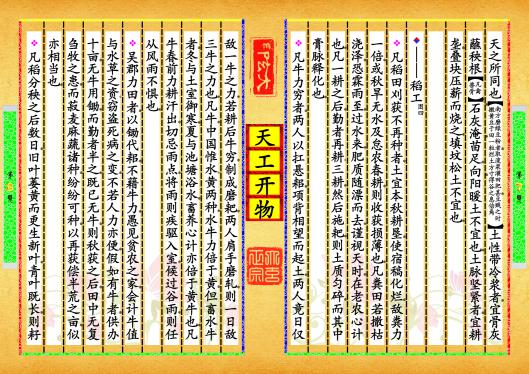 天之所同也【南方磨绿豆粉者取溲浆灌田肥甚豆贱之时
撒黄豆于田一粒烂土方三寸得谷之息倍焉】土性带冷浆者宜骨灰
蘸秧根【凡禽兽骨】石灰淹苗足向阳暖土不宜也土脉坚紧者宜耕
垄叠块压薪而烧之填坟松土不宜也
稻工 图四
凡稻田刈获不再种者土宜本秋耕垦使宿稿化烂敌粪力
一倍或秋旱无水及怠农春耕则收获损薄也凡粪田若撒枯
浇泽恐霖雨至过水来肥质随漂而去谨视天时在老农心计
也凡一耕之后勤者再耕三耕然后施耙则土质匀碎而其中
膏脉释化也
凡牛力穷者两人以扛悬耜项背相望而起土两人竟日仅
天工开物
敌一牛之力若耕后牛穷制成磨耙两人肩手磨轧则一日敌
三牛之力也凡牛中国惟水黄两种水牛力倍于黄但畜水牛
者冬与土室御寒夏与池塘浴水畜养心计亦倍于黄牛也凡
牛春前力耕汗出切忌雨点将雨则疾驱入室候过谷雨则任
从风雨不惧也
吴郡力田者以锄代耜不藉牛力愚见贫农之家会计牛值
与水草之资窃盗死病之变不若人力亦便假如有牛者供办
十亩无牛用锄而勤者半之既已无牛则秋获之后田中无复
刍牧之患而菽麦麻蔬诸种纷纷可种以再获偿半荒之亩似
亦相当也
凡稻分秧之后数日旧叶萎黄而更生新叶青叶既长则耔